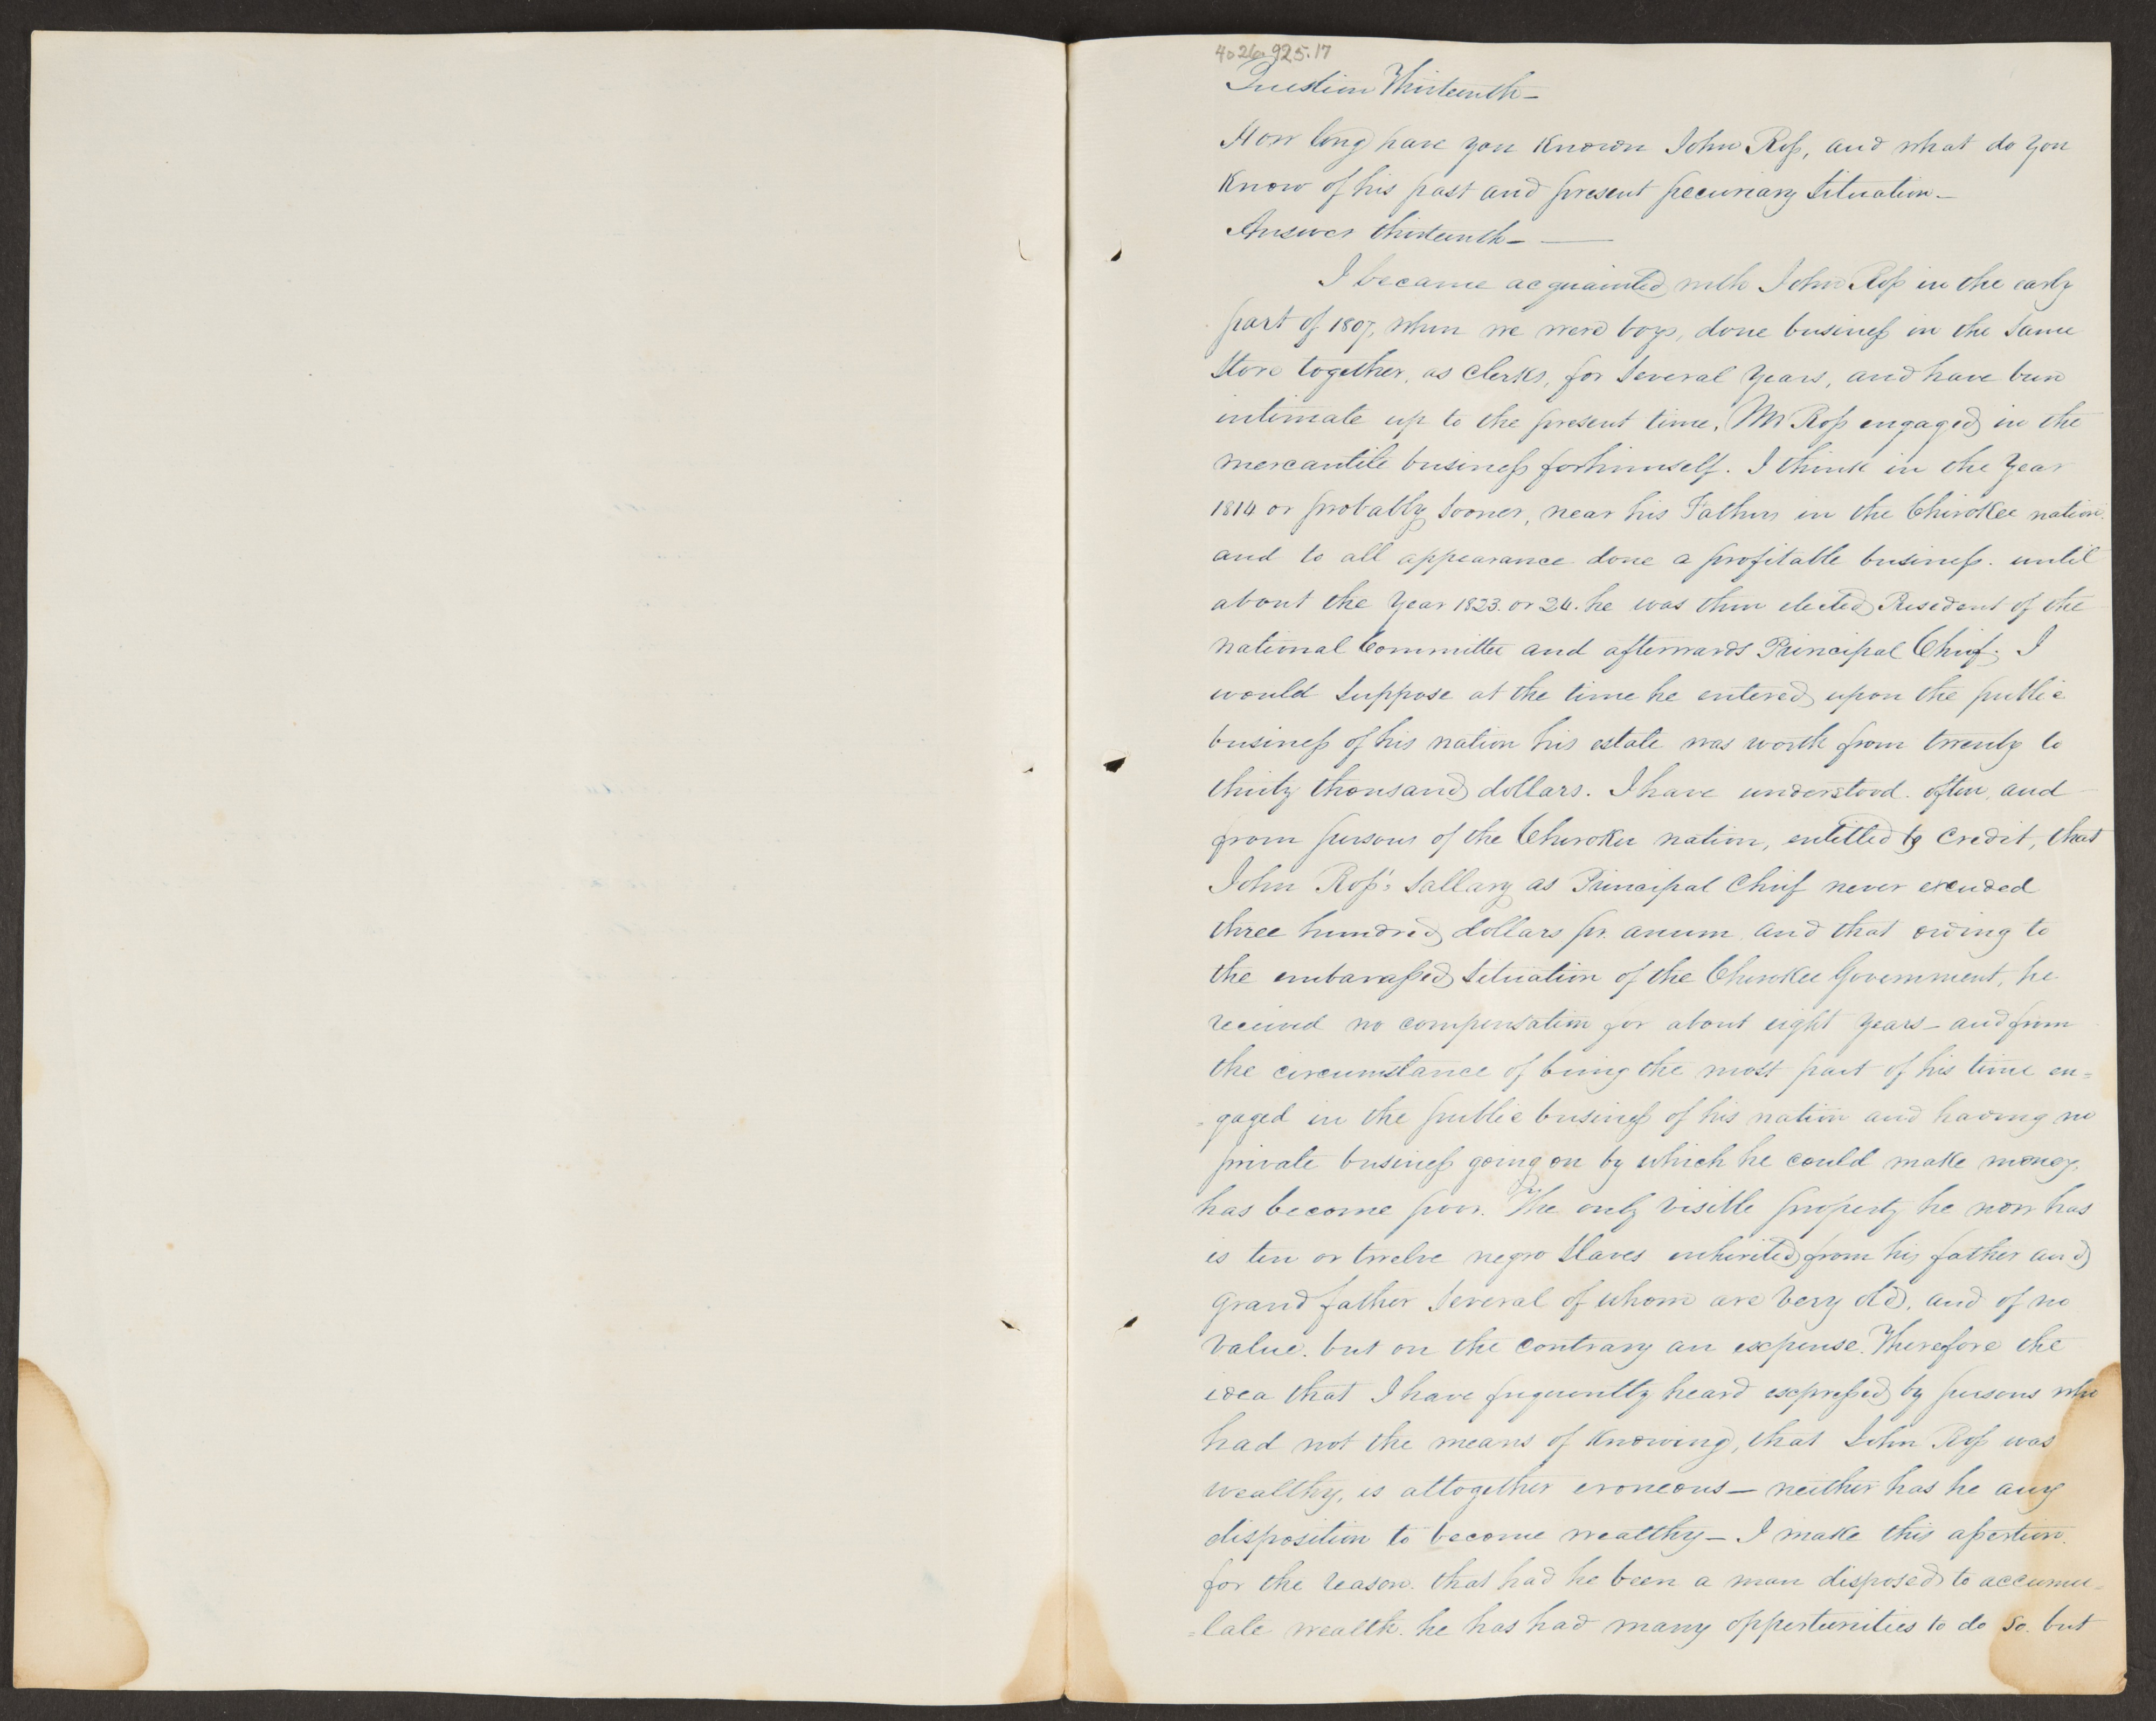 4026.925.17
Question Thirteenth—
How long have you Known John Ross, and what do you
Know of his past and present pecuniary Situation—
Answer thirteenth— —
I became acquainted with John Ross in the early
part of 1807, when we were boys, done business in the same
Store together, as Clerks, for Several Years, and have been
intimate up to the present time. Mr Ross engaged in the
mercantile business for himself. I think in the Year
1814 or probably Sooner, near his Fathers in the Cherokee nation.
and to all appearance done a profitable business. until
about the Year 1823. or 24. he was then elected President of the
National Committee and afterwards Principal Chief. I
would Suppose at the time he entered upon the public
business of his nation his estate was worth from twenty to
thirty thousand dollars. I have understood often, and
from persons of the Cherokee nation, entitled to Credit, that
John Ross's Sallary as Principal Chief never exceeded
three hundred dollars pr. anum and that owing to
the embarassed Situation of the Cherokee Government, he
received no compensation for about eight Years— and from
the circumstance of being the most part of his time en=
=gaged in the public business of his nation and having no
private business going on by which he could make money,
has become poor. The only visible property he now has
is ten or twelve negro Slaves inherited from his father and
grand father Several of whom are very old, and of no
value. but on the Contrary an expense. Therefore the
idea that I have frequently heard expressed by persons who
had not the means of Knowing, that John Ross was
wealthy, is altogether eroneous— neither has he any
disposition to become wealthy— I make this assertion.
for the reason. that had he been a man disposed to accumu=
=late wealth. he has had many oppertunities to do So. but